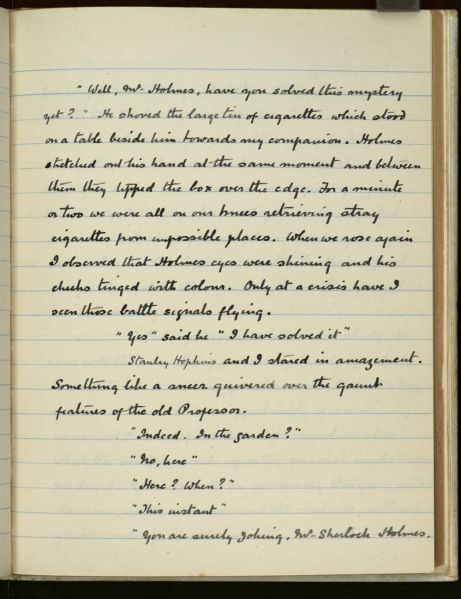 "Well, Mr Holmes, have you solved this mystery
yet?" He shoved the large tin of cigarettes which stood
on a table beside him towards my companion. Holmes
stretched out his hand at the same moment and between
them they tipped the box over the edge. For a minute
or two we were all on our knees retrieving stray
cigarettes from impossible places. When we rose again
I observed that Holmes eyes were shining and his
cheeks tinged with colour. Only at a crisis have I
seen those battle signals flying.
"Yes" said he "I have solved it"
Stanley Hopkins and I stared in amazement.
Something like a sneer quivered over the gaunt
features of the old Professor.
"Indeed. In the garden?"
"No, here"
"Here? When?"
"This instant"
"You are surely joking, Mr Sherlock Holmes.